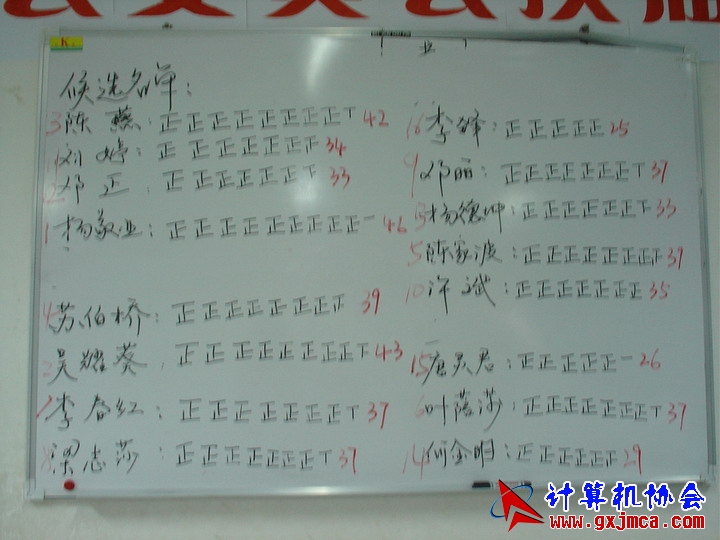 候选名单:
3 陈燕: 正正正正正正正正T 42
刘婷: 正正正正正正T 34
12 邓正: 正正正正正正T 33
1 杨敬业: 正正正正正正正正正一 46
4 苏伯桥: 正正正正正正正正 39
2 吴耀葵. 正正正正正正正正T 43
7 李春红: 正正正正正正正T 37
8 梁志莎: 正正正正正正正T 37
16 李锋: 正正正正正 25
9 邓丽: 正正正正正正正T 37
13 杨德帅: 正正正正正正T 33
5 陈家波: 正正正正正正正正 39
10 许斌: 正正正正正正正 35
15 唐灵君: 正正正正正一 26
6 叶蓓莎: 正正正正正正正T 37
14 何金明: 正正正正正正 29
计算机协会
www.gxjmca.com